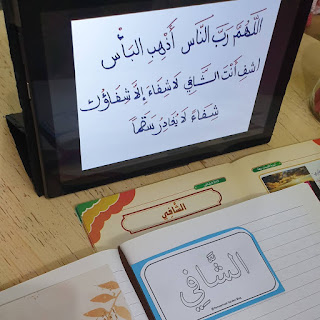 اللَّهُمَّ رَبَّ النَّاسِ أَذْهِبِ البَأْسَ
اشفِ أَنْتَ الشَّافِي لَا شِفَاءَ إِلَّا شِفَاؤُكَ
شِفَاءً لَا يُغَادِرُ سَقَمًا
الشَّافِي
الشَّافِي